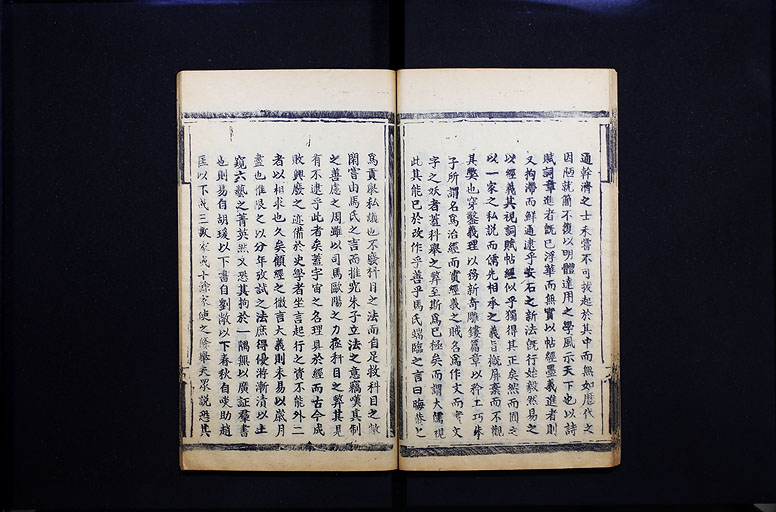 通幹濟之士未嘗不可拔起於其中而無如歷代之
因陋就簡不復以明體達用之學風示天下也以詩
賦詞章進者旣已浮華而無實以帖經墨義進者則
又拘滯而鮮通逮乎安石之新法旣行始毅然易之
以經義其視詞賦帖經似乎獨得其正矣然而固
以一家之私說而儒先相承之義旨槪屏棄而不觀
其獘也穿鑿義理以務新奇雕鏤篇章以矜工巧朱
子所謂名爲治經而實經義之賊名爲作文而實文
字之妖者蓋科舉之弊至斯爲已極矣而謂大儒視
此其能已於改作乎善乎馬氏端臨之言曰
爲貢舉私議也不廢科目之法而自足救科目之
閑嘗由馬氏之言而推究朱子立法之意竊嘆其制
之善慮之周雖以司馬歐陽之力救科目之弊其見
有不逮乎此者矣蓋宇宙之名理具於經而古今成
敗興廢之迹備於史學者坐言起行之資不能外二
者以相求也久矣顧經之微言大義則未易以歲月
盡也惟限之以分年攷試之法庶得優游漸漬以
窺六藝之菁英然又恐其拘於一隅無以廣証羣書
也則易自胡瑗以下書自劉敞以下春秋自啖助趙
匡以下或三數家或十餘家使之條舉衆說恐其